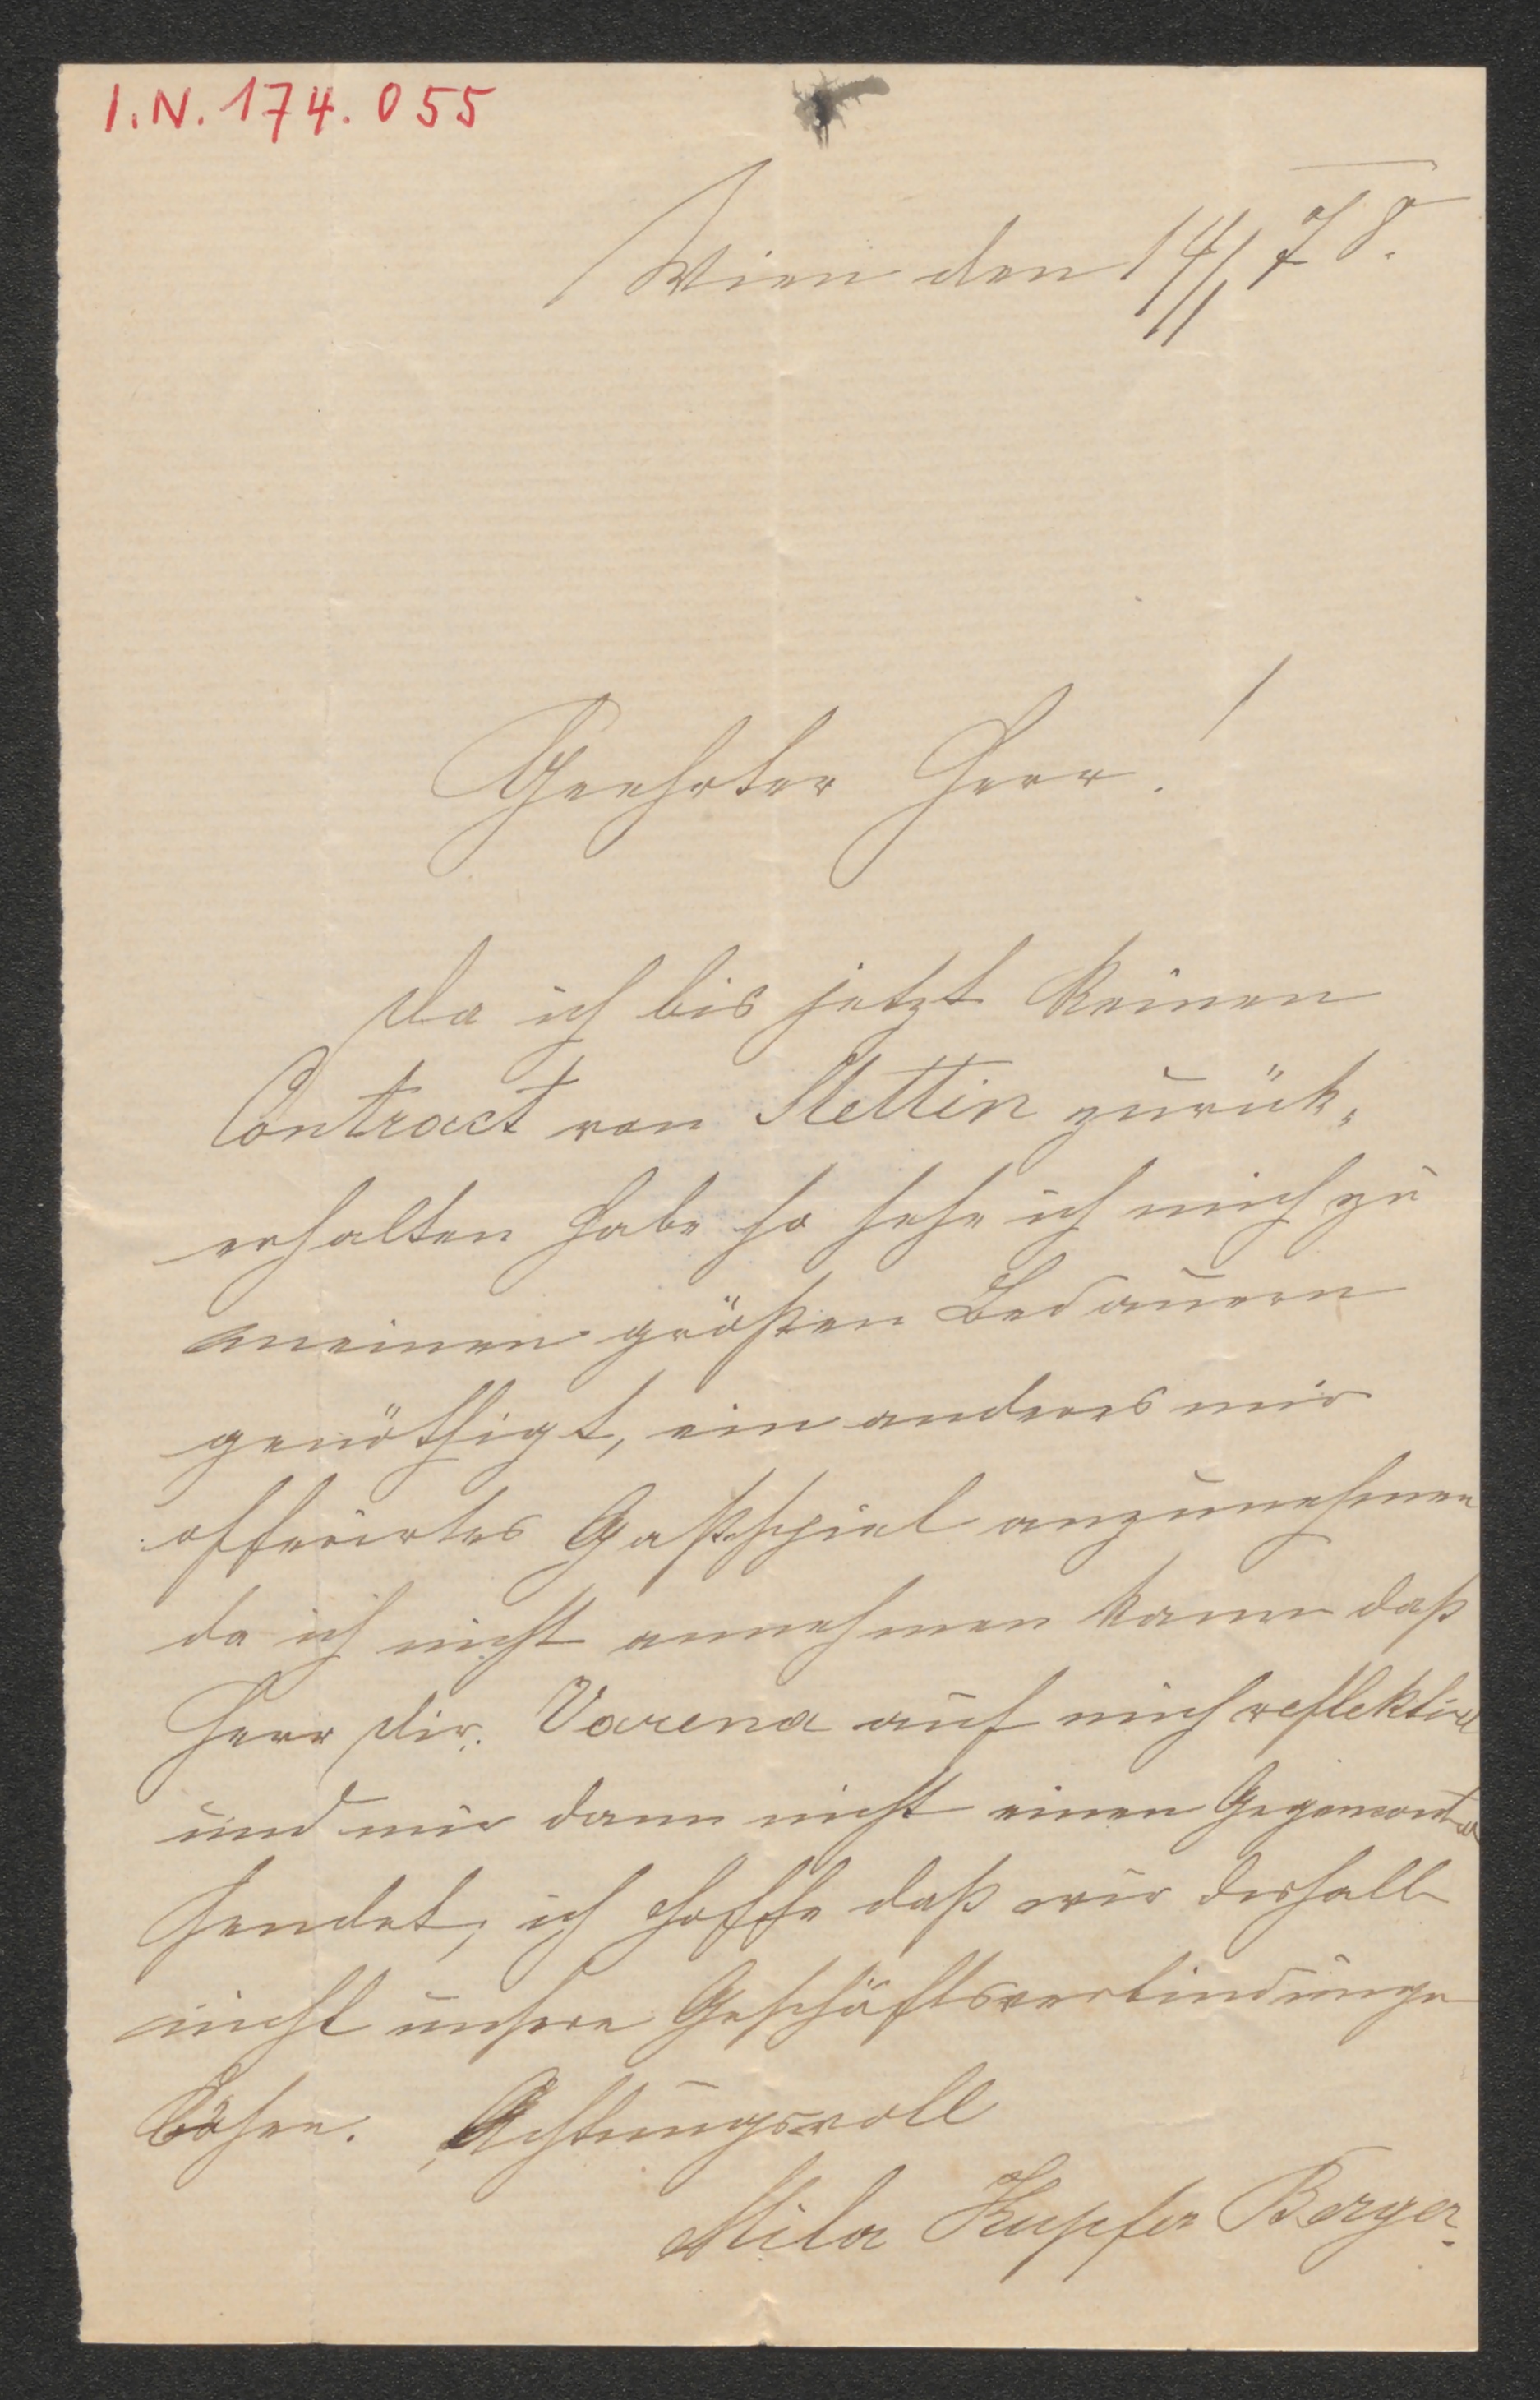 I.N. 174.055
Wien den 14/11 78.
Geehrter Herr!
Da ich bis jetzt keinen
Contract von Stettin zurük„
erhalten habe so sehe ich mich zu
meinen größten Bedauern
genöthigt, ein anderes mir
offerirtes Gastspiel anzunehmen
da ich nicht annehmen kann daß
Herr Dir. Varena auf mich reflektirt
und mir dann nicht einen
sendet, ich hoffe daß wir deshalb
nicht unsere Geschäftsverbindunge
lösen. Achtungsvoll
Mila Kupfer Berger.